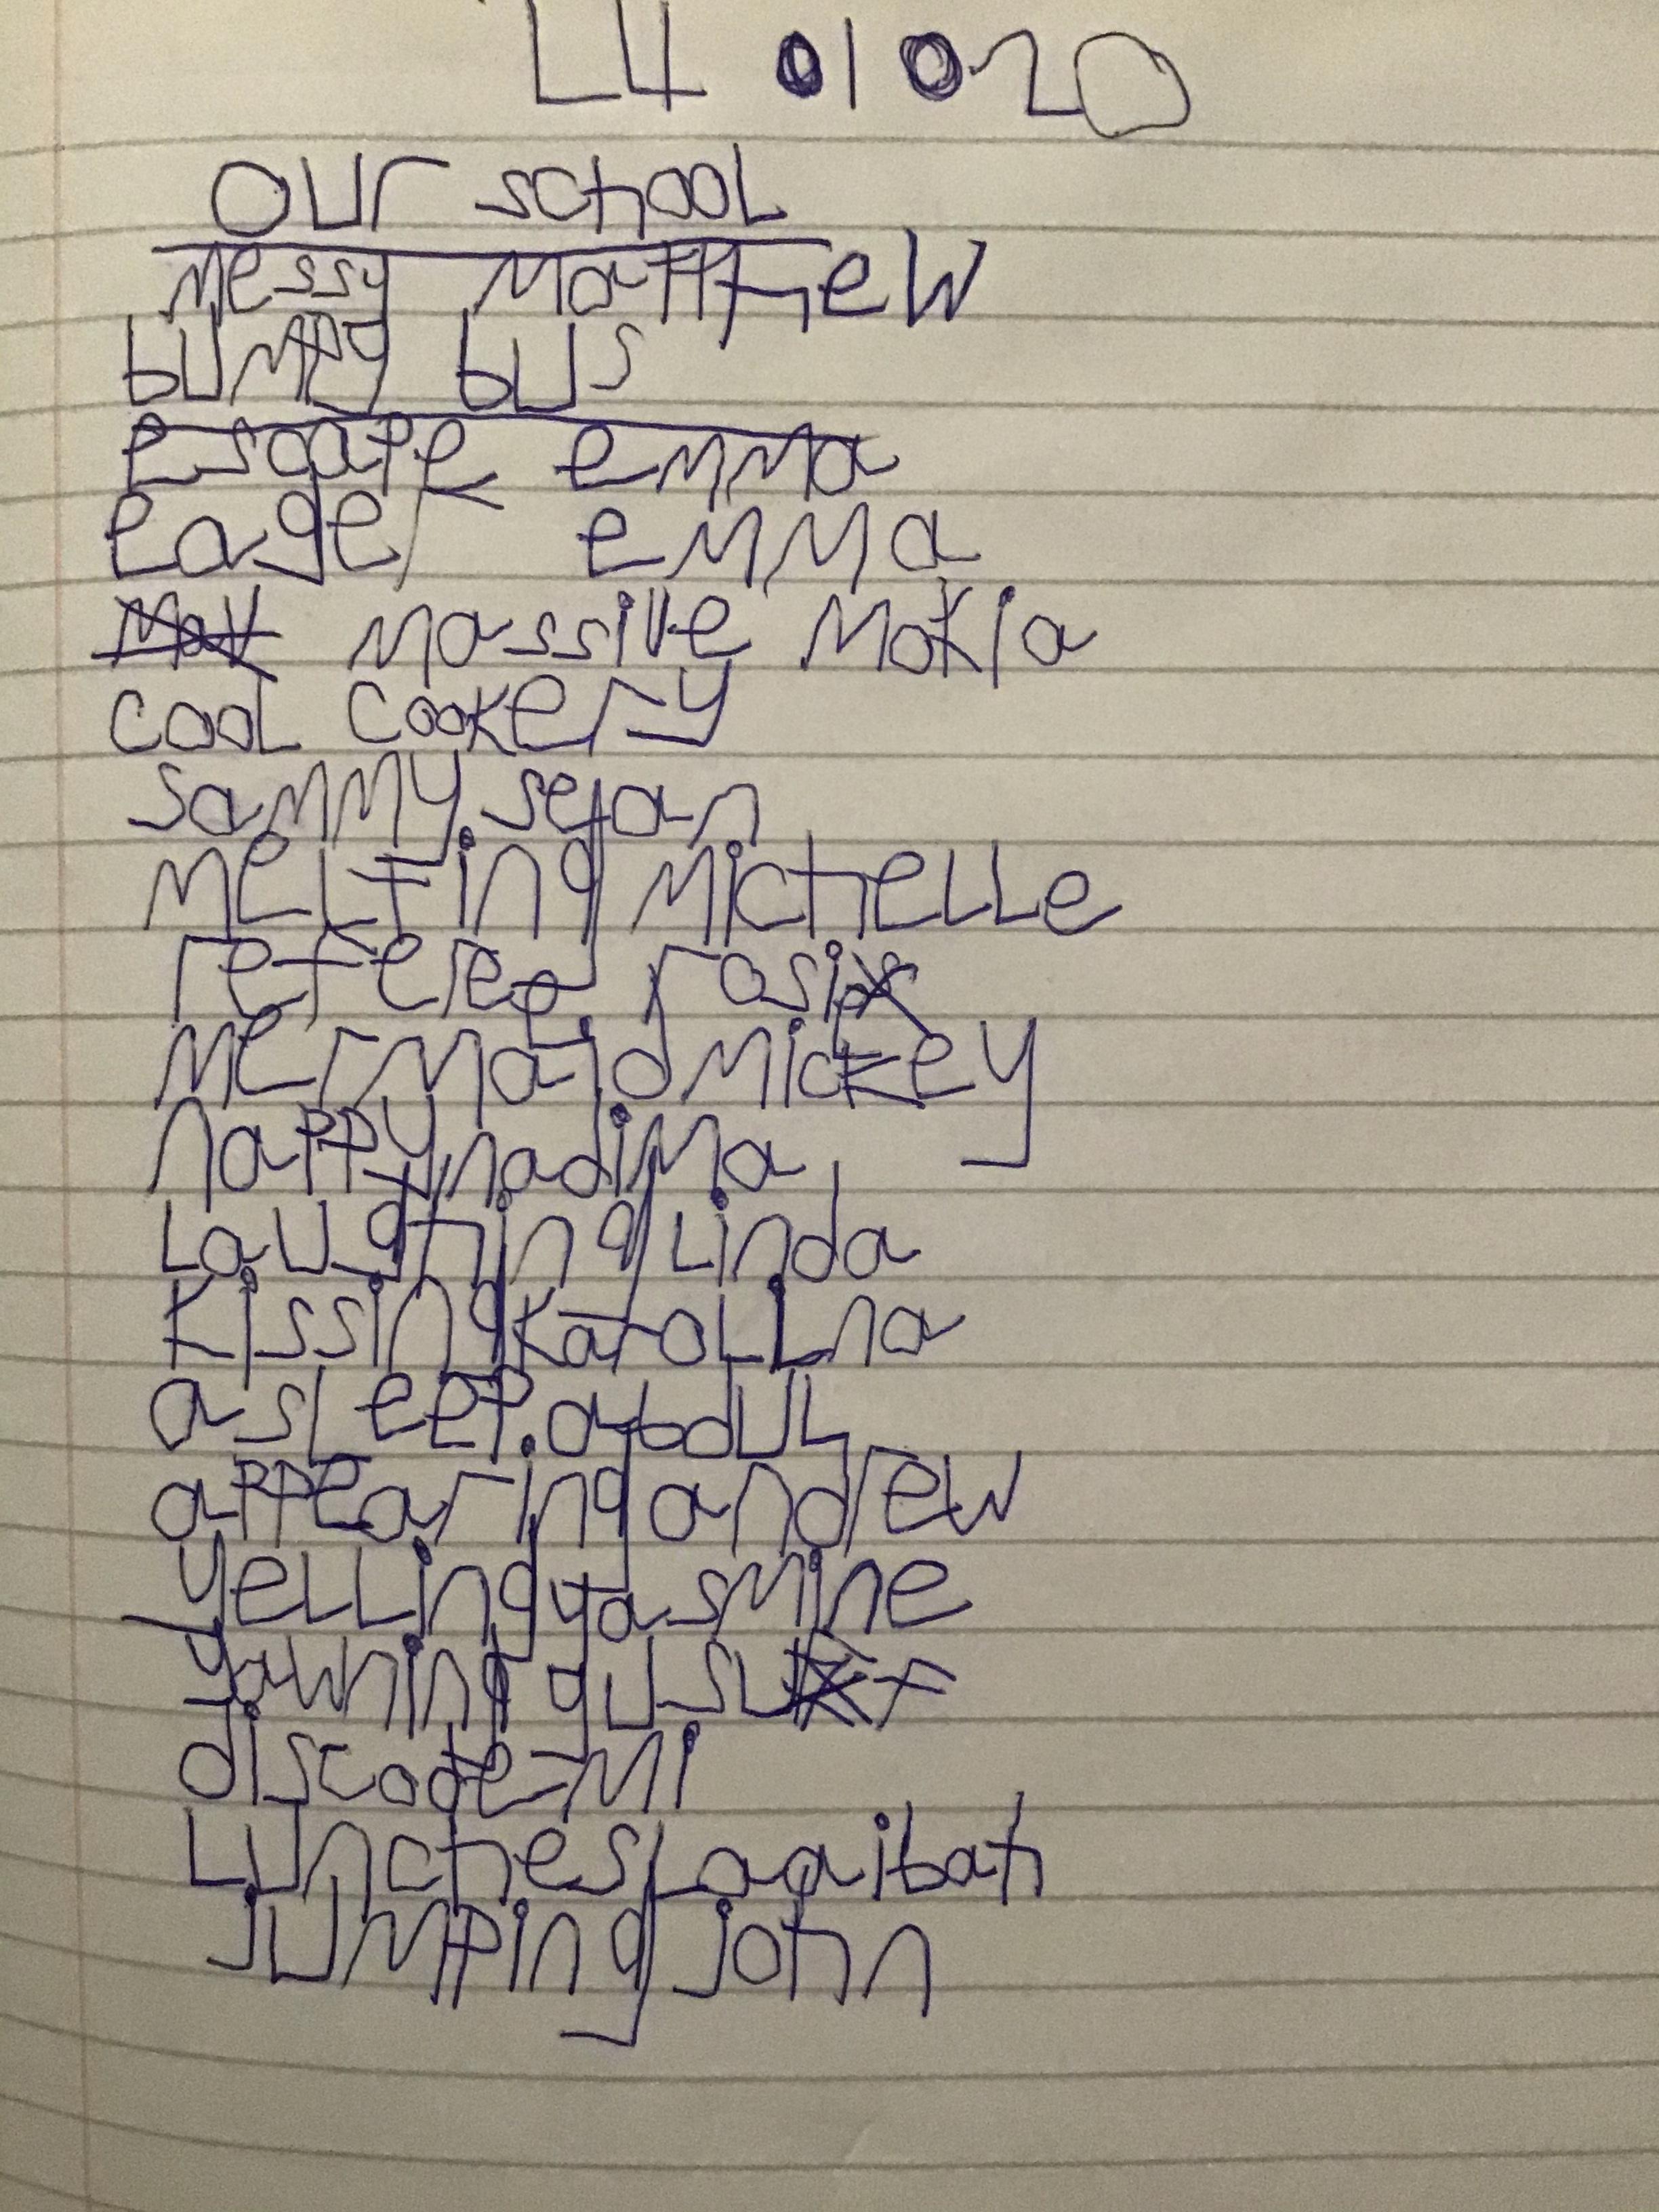 our school
messy matthew
bumpy bus
escape emma
eager emma
massive mokia
cool cookery
sammy sejan
melting michelle
referee rosie
mermaid mickey
nappy nadima
laughing linda
kissing karolina
asleep abdul
appearing andrew
yelling yasmine
yawning yusuf
disco demi
lunches laqibah
jumping john